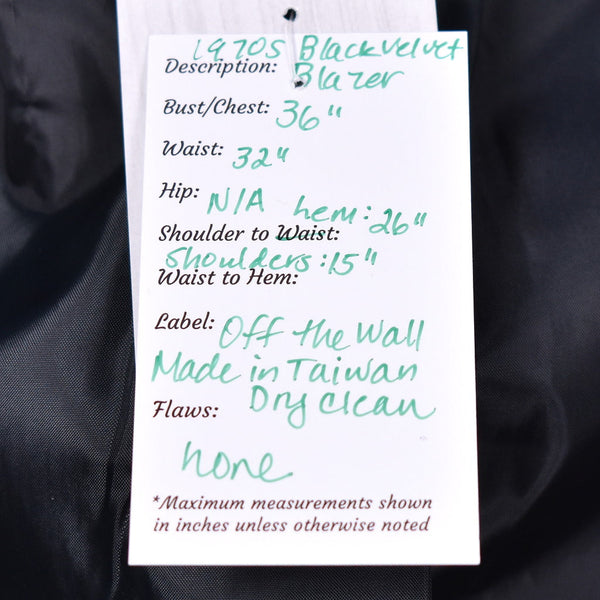 1970s Black velvet
Description: Blazer
Bust/Chest: 36"
Waist: 32"
Hip: N/A
hem: 26"
Shoulder to Waist:
Shoulders: 15"
Waist to Hem:
Label: Off the Wall
Made in Taiwan
Dry Clean
Flaws:
none
*Maximum measurements shown
in inches unless otherwise noted